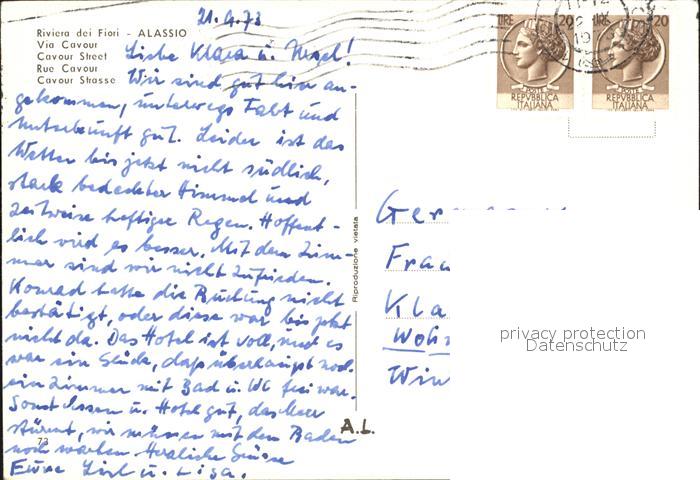 21.4.73
Riviera dei Fiori - ALASSIO
Via Cavour
Cavour Street
Rue Cavour
Cavour Strasse
Liebe Klara u.
Wir sind gut hier an-
gekommen, unterwegs Fahrt und
Unterkunft gut. Leider ist das
Wetter bis jetzt nicht südlich,
stark bedeckter Himmel und
zeitweise heftiger Regen. Hoffent-
lich wird es besser. Mit dem Zim-
mer sind wir nicht zufrieden.
Konrad hatte die Buchung nicht
bestätigt, oder diese war bis jetzt
nicht da. Das Hotel ist voll, und es
war ein Glück, daß überhaupt noch
ein Zimmer mit Bad u. WC frei war.
Sonst Essen u. Hotel gut, das Meer
stürmt, wir müssen mit dem Baden
noch warten. Herzliche Grüsse
Eure Lisl u. Lisa.
73
A.L.
Riproduzione vietata
LIRE 20
POSTE
REPVBBLICA
ITALIANA
LIRE 20
POSTE
REPVBBLICA
ITALIANA
Ger
Frau
Kla
Woh
Win
privacy protection
Datenschutz